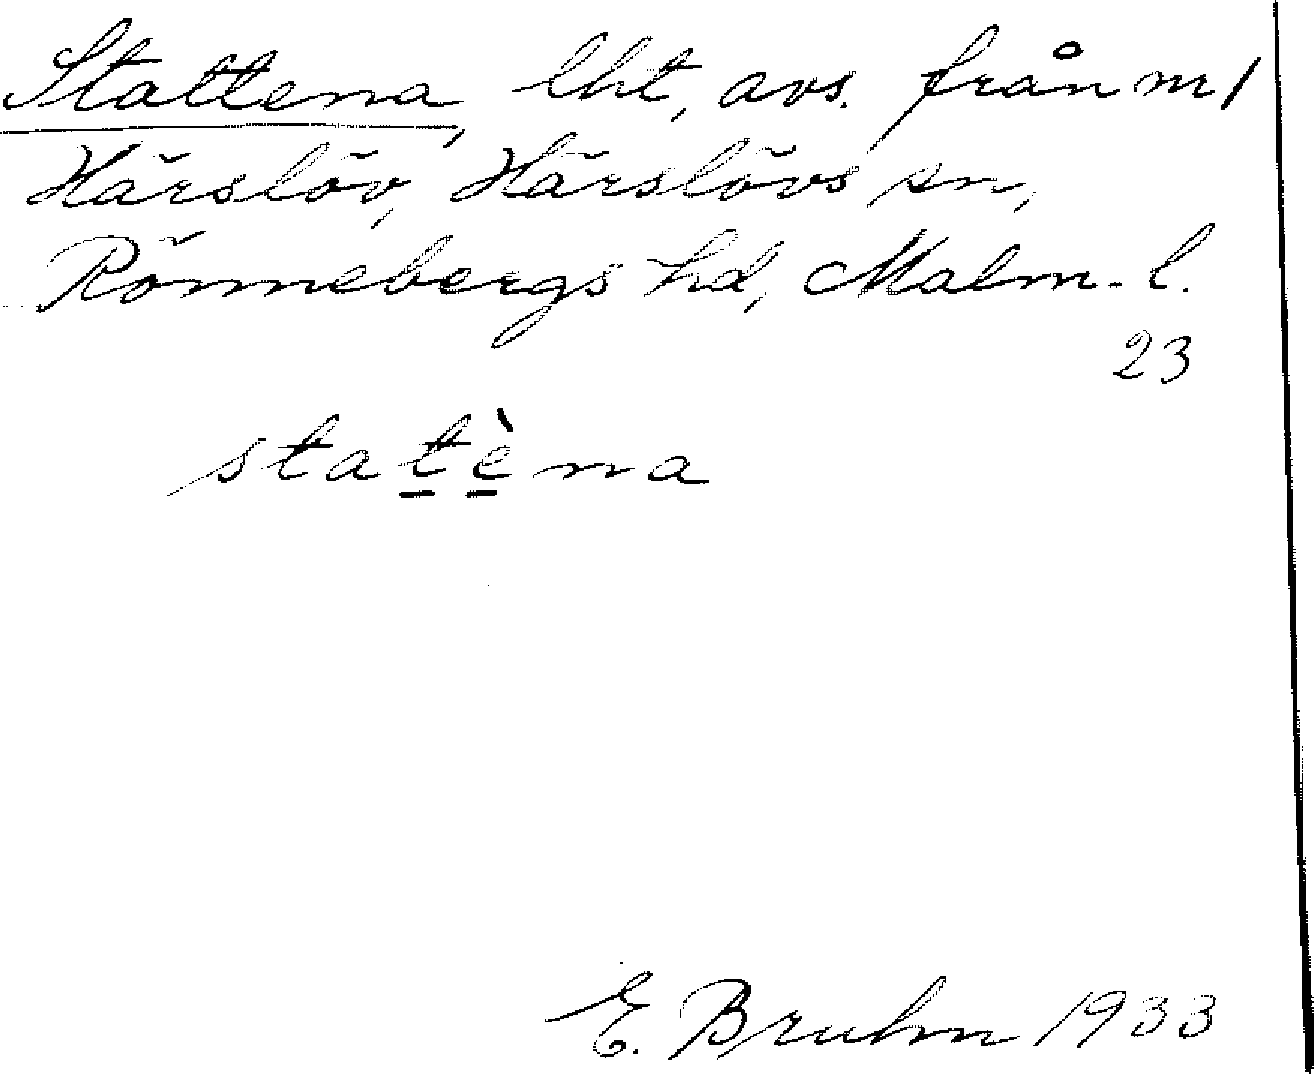 Stattena, lht, avs. från nr 1
Härslöv, Härslövs sn,
Rönnebergs hd, Malm. l.
23
statèna
E. Bruhn 1933